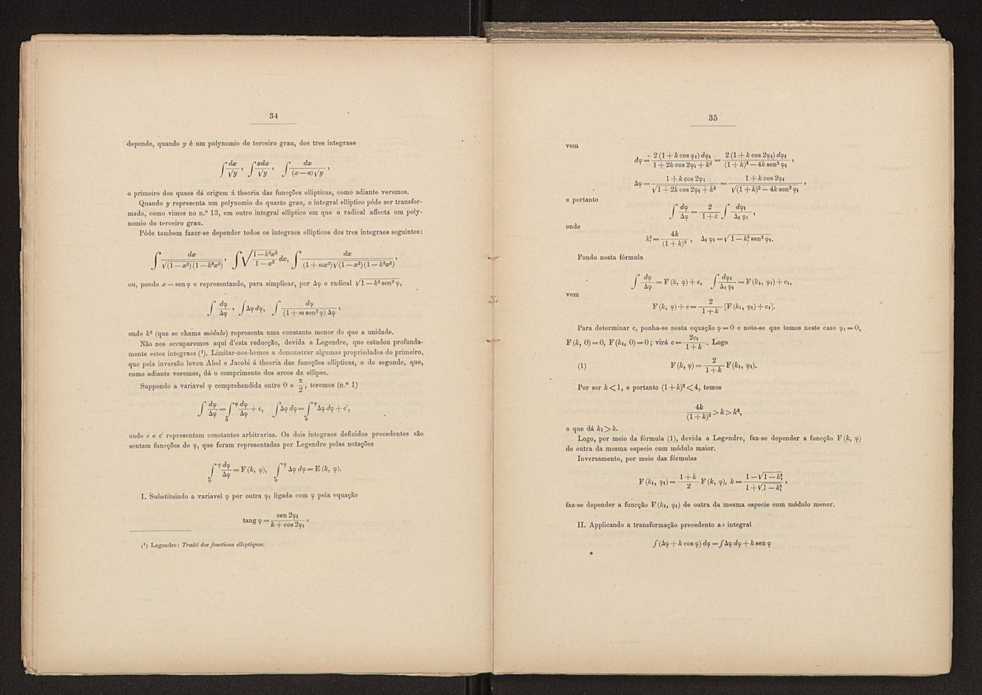 34
depende, quando y é um polynomio de terceiro grau, dos tres integraes
∫ dx/√y, ∫ xdx/√y, ∫ dx/((x−a)√y),
o primeiro dos quaes dá origem á theoria das funcções ellipticas, como adiante veremos.
Quando y representa um polynomio do quarto grau, o integral elliptico póde ser transfor-
mado, como vimos no n.º 13, em outro integral elliptico em que o radical affecta um poly-
nomio de terceiro grau.
Póde tambem fazer-se depender todos os integraes ellipticos dos tres integraes seguintes:
∫ dx/√((1−x²)(1−k²x²)), ∫ √((1−k²x²)/(1−x²)) dx, ∫ dx/((1+mx²)√((1−x²)(1−k²x²))),
ou, pondo x = sen φ e representando, para simplicar, por Δφ o radical √(1−k² sen² φ),
∫ dφ/Δφ, ∫Δφ dφ, ∫ dφ/((1+m sen² φ) Δφ),
onde k² (que se chama módulo) representa uma constante menor do que a unidade.
Não nos occuparemos aqui d'esta reducção, devida a Legendre, que estudou profunda-
mente estes integraes (¹). Limitar-nos-hemos a demonstrar algumas propriedades do primeiro,
que pela inversão levou Abel e Jacobi á theoria das funcções ellipticas, e do segundo, que,
como adiante veremos, dá o comprimento dos arcos da ellipse.
Suppondo a variavel φ comprehendida entre 0 e π/2, teremos (n.º 1)
∫ dφ/Δφ = ∫₀^φ dφ/Δφ + c, ∫Δφ dφ = ∫₀^φ Δφ dφ + c',
onde c e c' representam constantes arbitrarias. Os dois integraes definidos precedentes são
sentam funcções de φ, que foram representadas por Legendre pelas notações
∫₀^φ dφ/Δφ = F(k, φ), ∫₀^φ Δφ dφ = E (k, φ).
I. Substituindo a variavel φ por outra φ₁ ligada com φ pela equação
tang φ = sen 2φ₁/(k + cos 2φ₁).
(¹) Legendre: Traité des fonctions elliptiques.
35
vem
dφ = 2 (1 + k cos φ₁) dφ₁/(1 + 2k cos 2φ₁ + k²) = 2 (1 + k cos 2φ₁) dφ₁/((1 + k)² − 4k sen² φ₁),
Δφ = (1 + k cos 2φ₁)/√(1 + 2k cos 2φ₁ + k²) = (1 + k cos 2φ₁)/√((1 + k)² − 4k sen² φ₁),
e portanto
∫ dφ/Δφ = 2/(1 + k) ∫ dφ₁/Δ₁φ₁,
onde
k₁² = 4k/(1 + k)², Δ₁φ₁ = √(1 − k₁² sen² φ₁).
Pondo nesta fórmula
∫ dφ/Δφ = F (k, φ) + c, ∫ dφ₁/Δ₁φ₁ = F (k₁, φ₁) + c₁,
vem
F (k, φ) + c = 2/(1 + k) [F (k₁, φ₁) + c₁].
Para determinar c, ponha-se nesta equação φ = 0 e note-se que temos neste caso φ₁ = 0,
F (k, 0) = 0, F (k₁, 0) = 0; virá c = 2c₁/(1 + k). Logo
(1) F (k, φ) = 2/(1 + k) F (k₁, φ₁).
Por ser k < 1, e portanto (1 + k)² < 4, temos
4k/(1 + k)² > k > k²,
o que dá k₁ > k.
Logo, por meio da fórmula (1), devida a Legendre, faz-se depender a funcção F (k, φ)
de outra da mesma especie com módulo maior.
Inversamente, por meio das fórmulas
F (k₁, φ₁) = (1 + k)/2 F (k, φ), k = (1 − √(1 − k₁²))/(1 + √(1 − k₁²)),
faz-se depender a funcção F (k₁, φ₁) de outra da mesma especie com módulo menor.
II. Applicando a transformação precedente ao integral
∫ (Δφ + k cos φ) dφ = ∫Δφ dφ + k sen φ
*